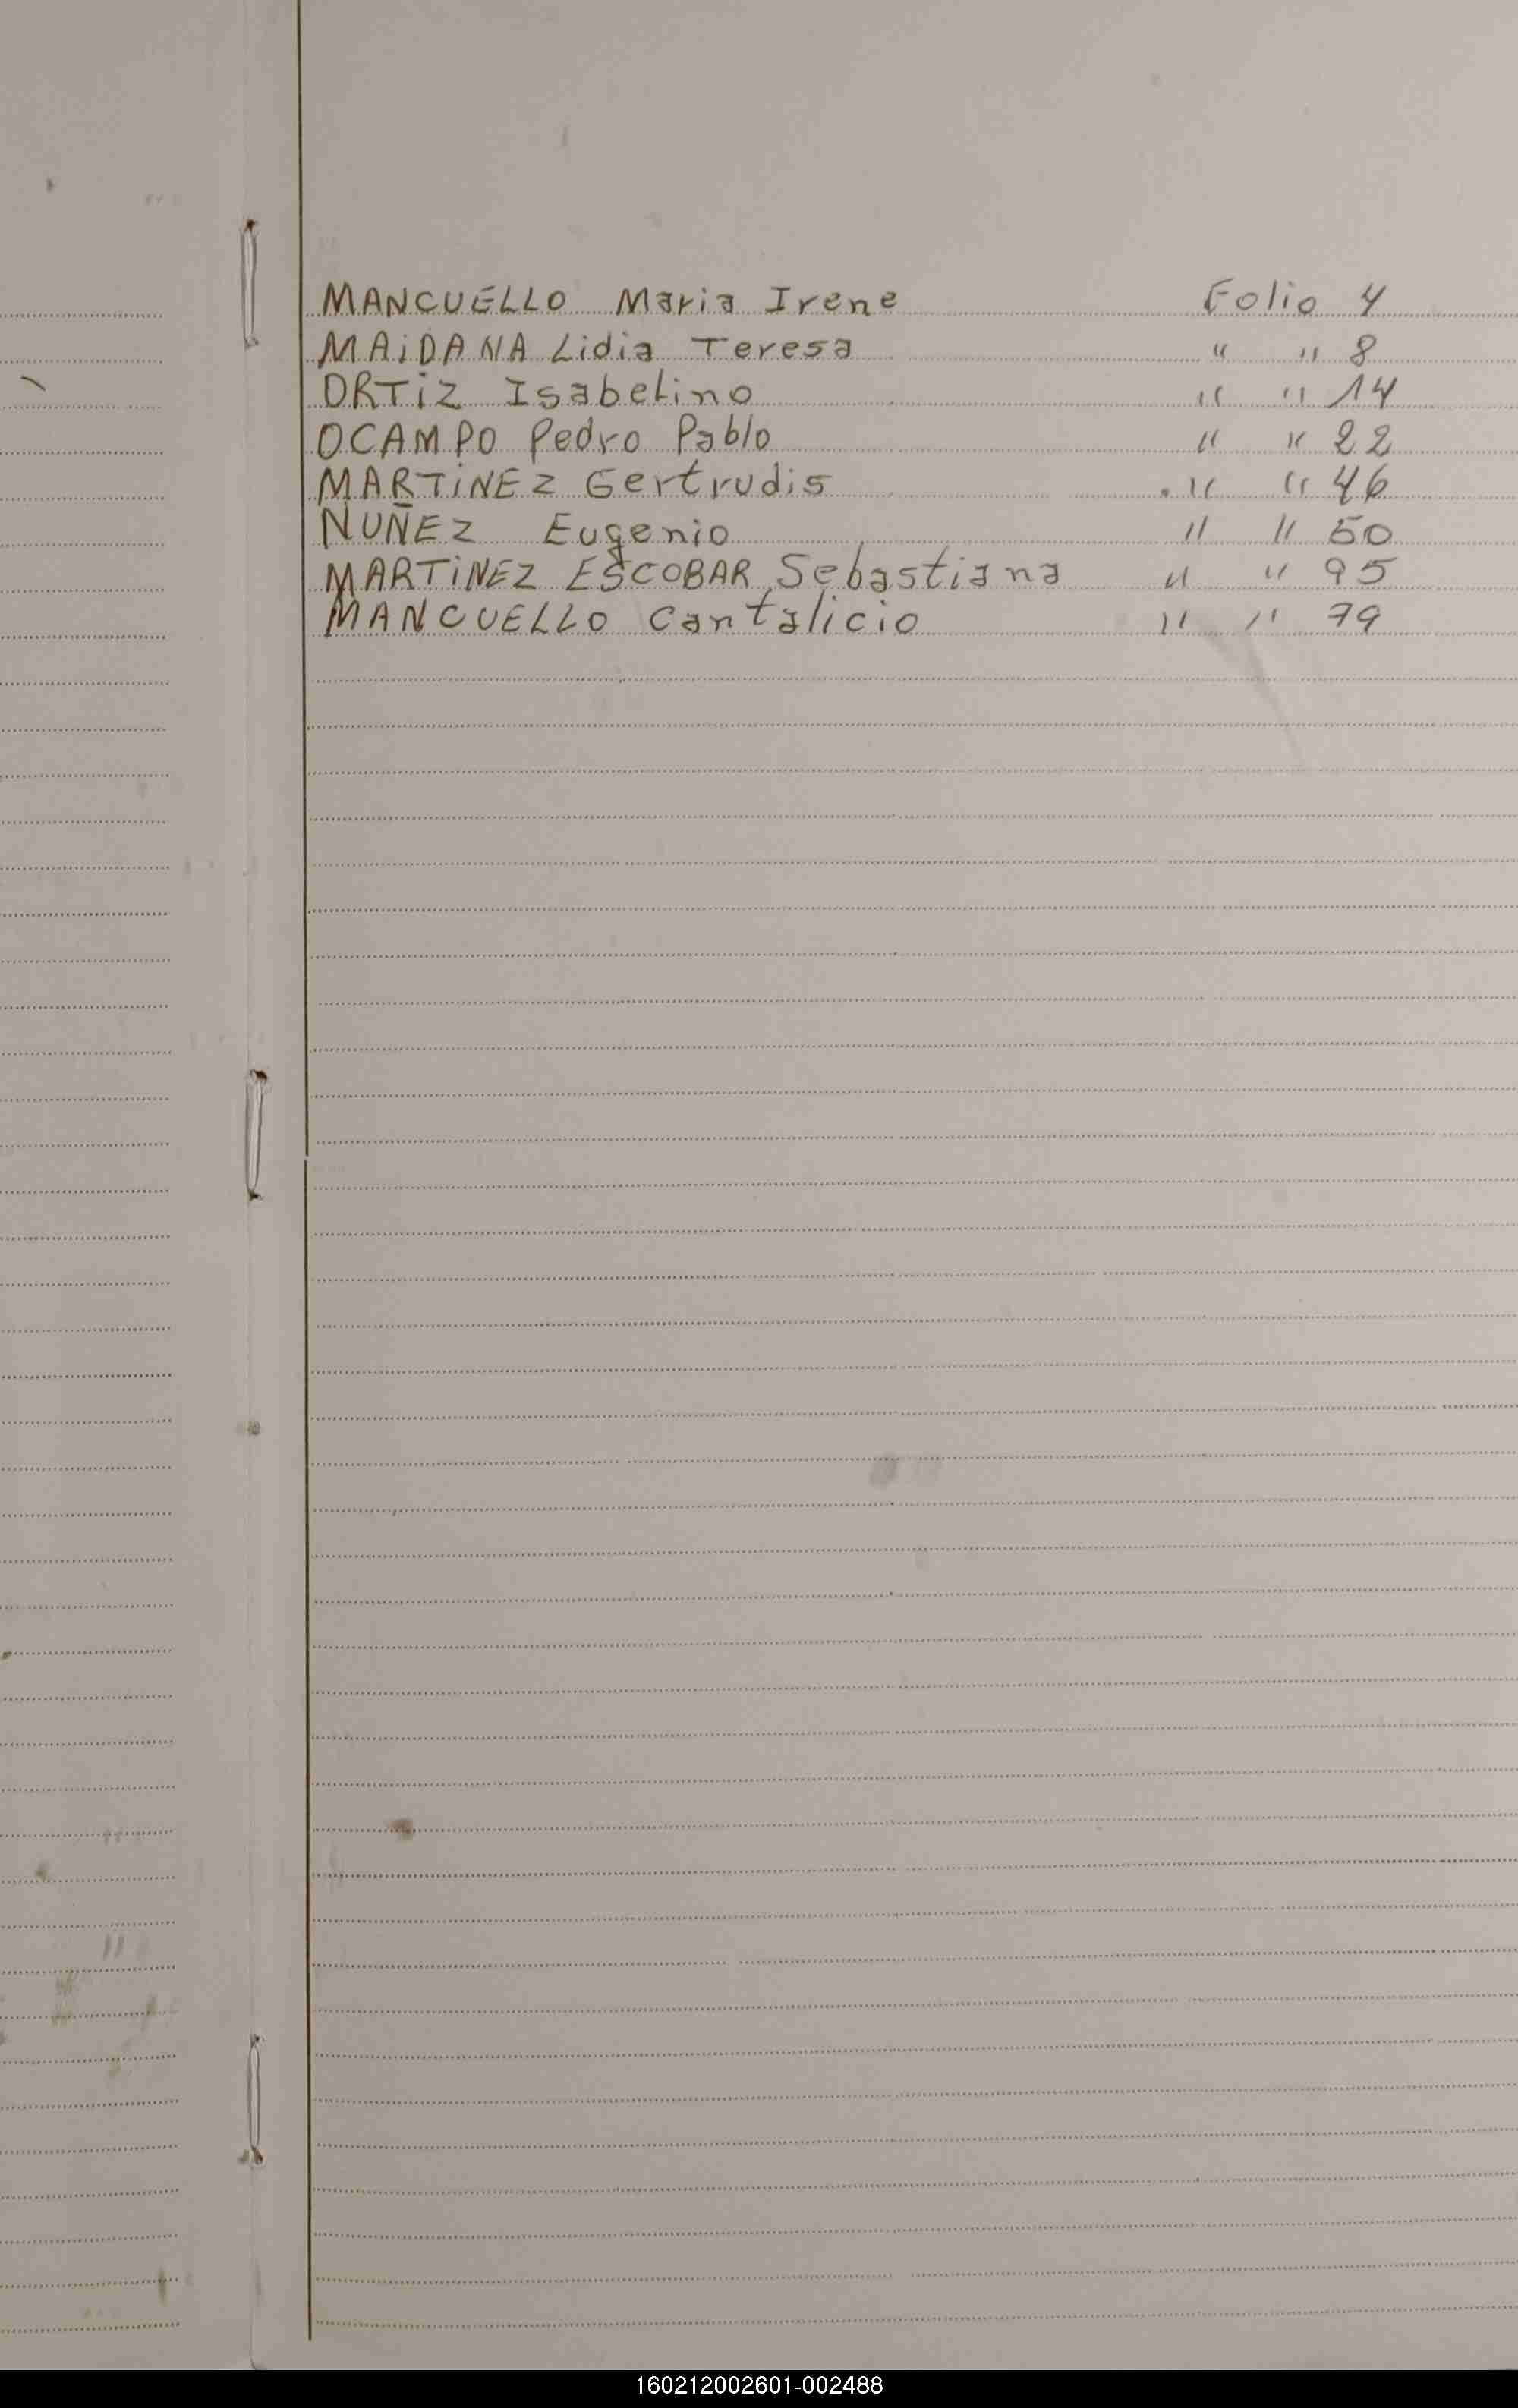 MANCUELLO Maria Irene Folio 4
MAiDANA Lidia Teresa " " 8
ORTiZ Isabelino " " 14
OCAMPO Pedro Pablo " " 22
MARTiNEZ Gertrudis " " 46
NUÑEZ Eugenio " " 50
MARTiNEZ ESCOBAR Sebastiana " " 95
MANCUELLO Cantalicio " " 79
160212002601-002488